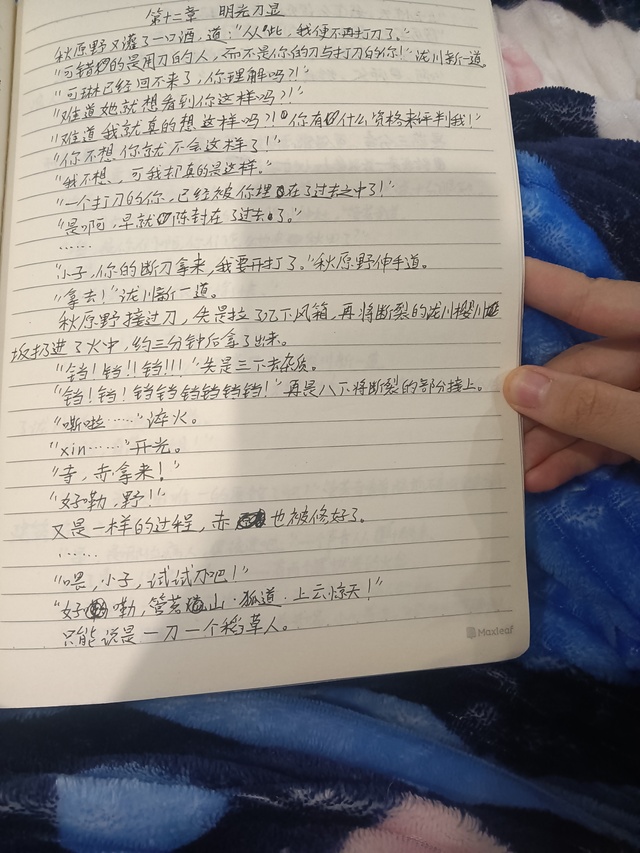 第十二章 明光刀显
秋原野又灌了一口酒，道："从此，我便不再打刀了。"
"可错的是用刀的人，而不是你的刀与打刀的你！"泷川新一道。
"可琳已经回不来了，你理解吗？！"
"难道她就想看到你这样吗？！"
"难道我就真的想这样吗？！你有什么资格来评判我！"
"你不想你就不会这样了！"
"我不想，可我却真的是这样。"
"一个打刀的你，已经被你埋在了过去之中了！"
"是啊，早就陈封在了过去了。"
……
"小子，你的断刀拿来，我要开打了。"秋原野伸手道。
"拿去！"泷川新一道。
秋原野接过刀，先是拉了几下风箱，再将断裂的泷川樱川
扔进了火中，约三分钟后拿了出来。
"铛！铛！！铛！！！"先是三下去杂质。
"铛！铛！铛铛铛铛铛铛！"再是八下将断裂的部分接上。
"嘶啦……"淬火。
"xin……"开光。
"寺，赤拿来！"
"好嘞，野！"
又是一样的过程，赤也被修好了。
……
"喂，小子，试试刀吧！"
"好嘞，管若山·狐道·上云惊天！"
只能说是一刀一个稻草人。
Maxleaf